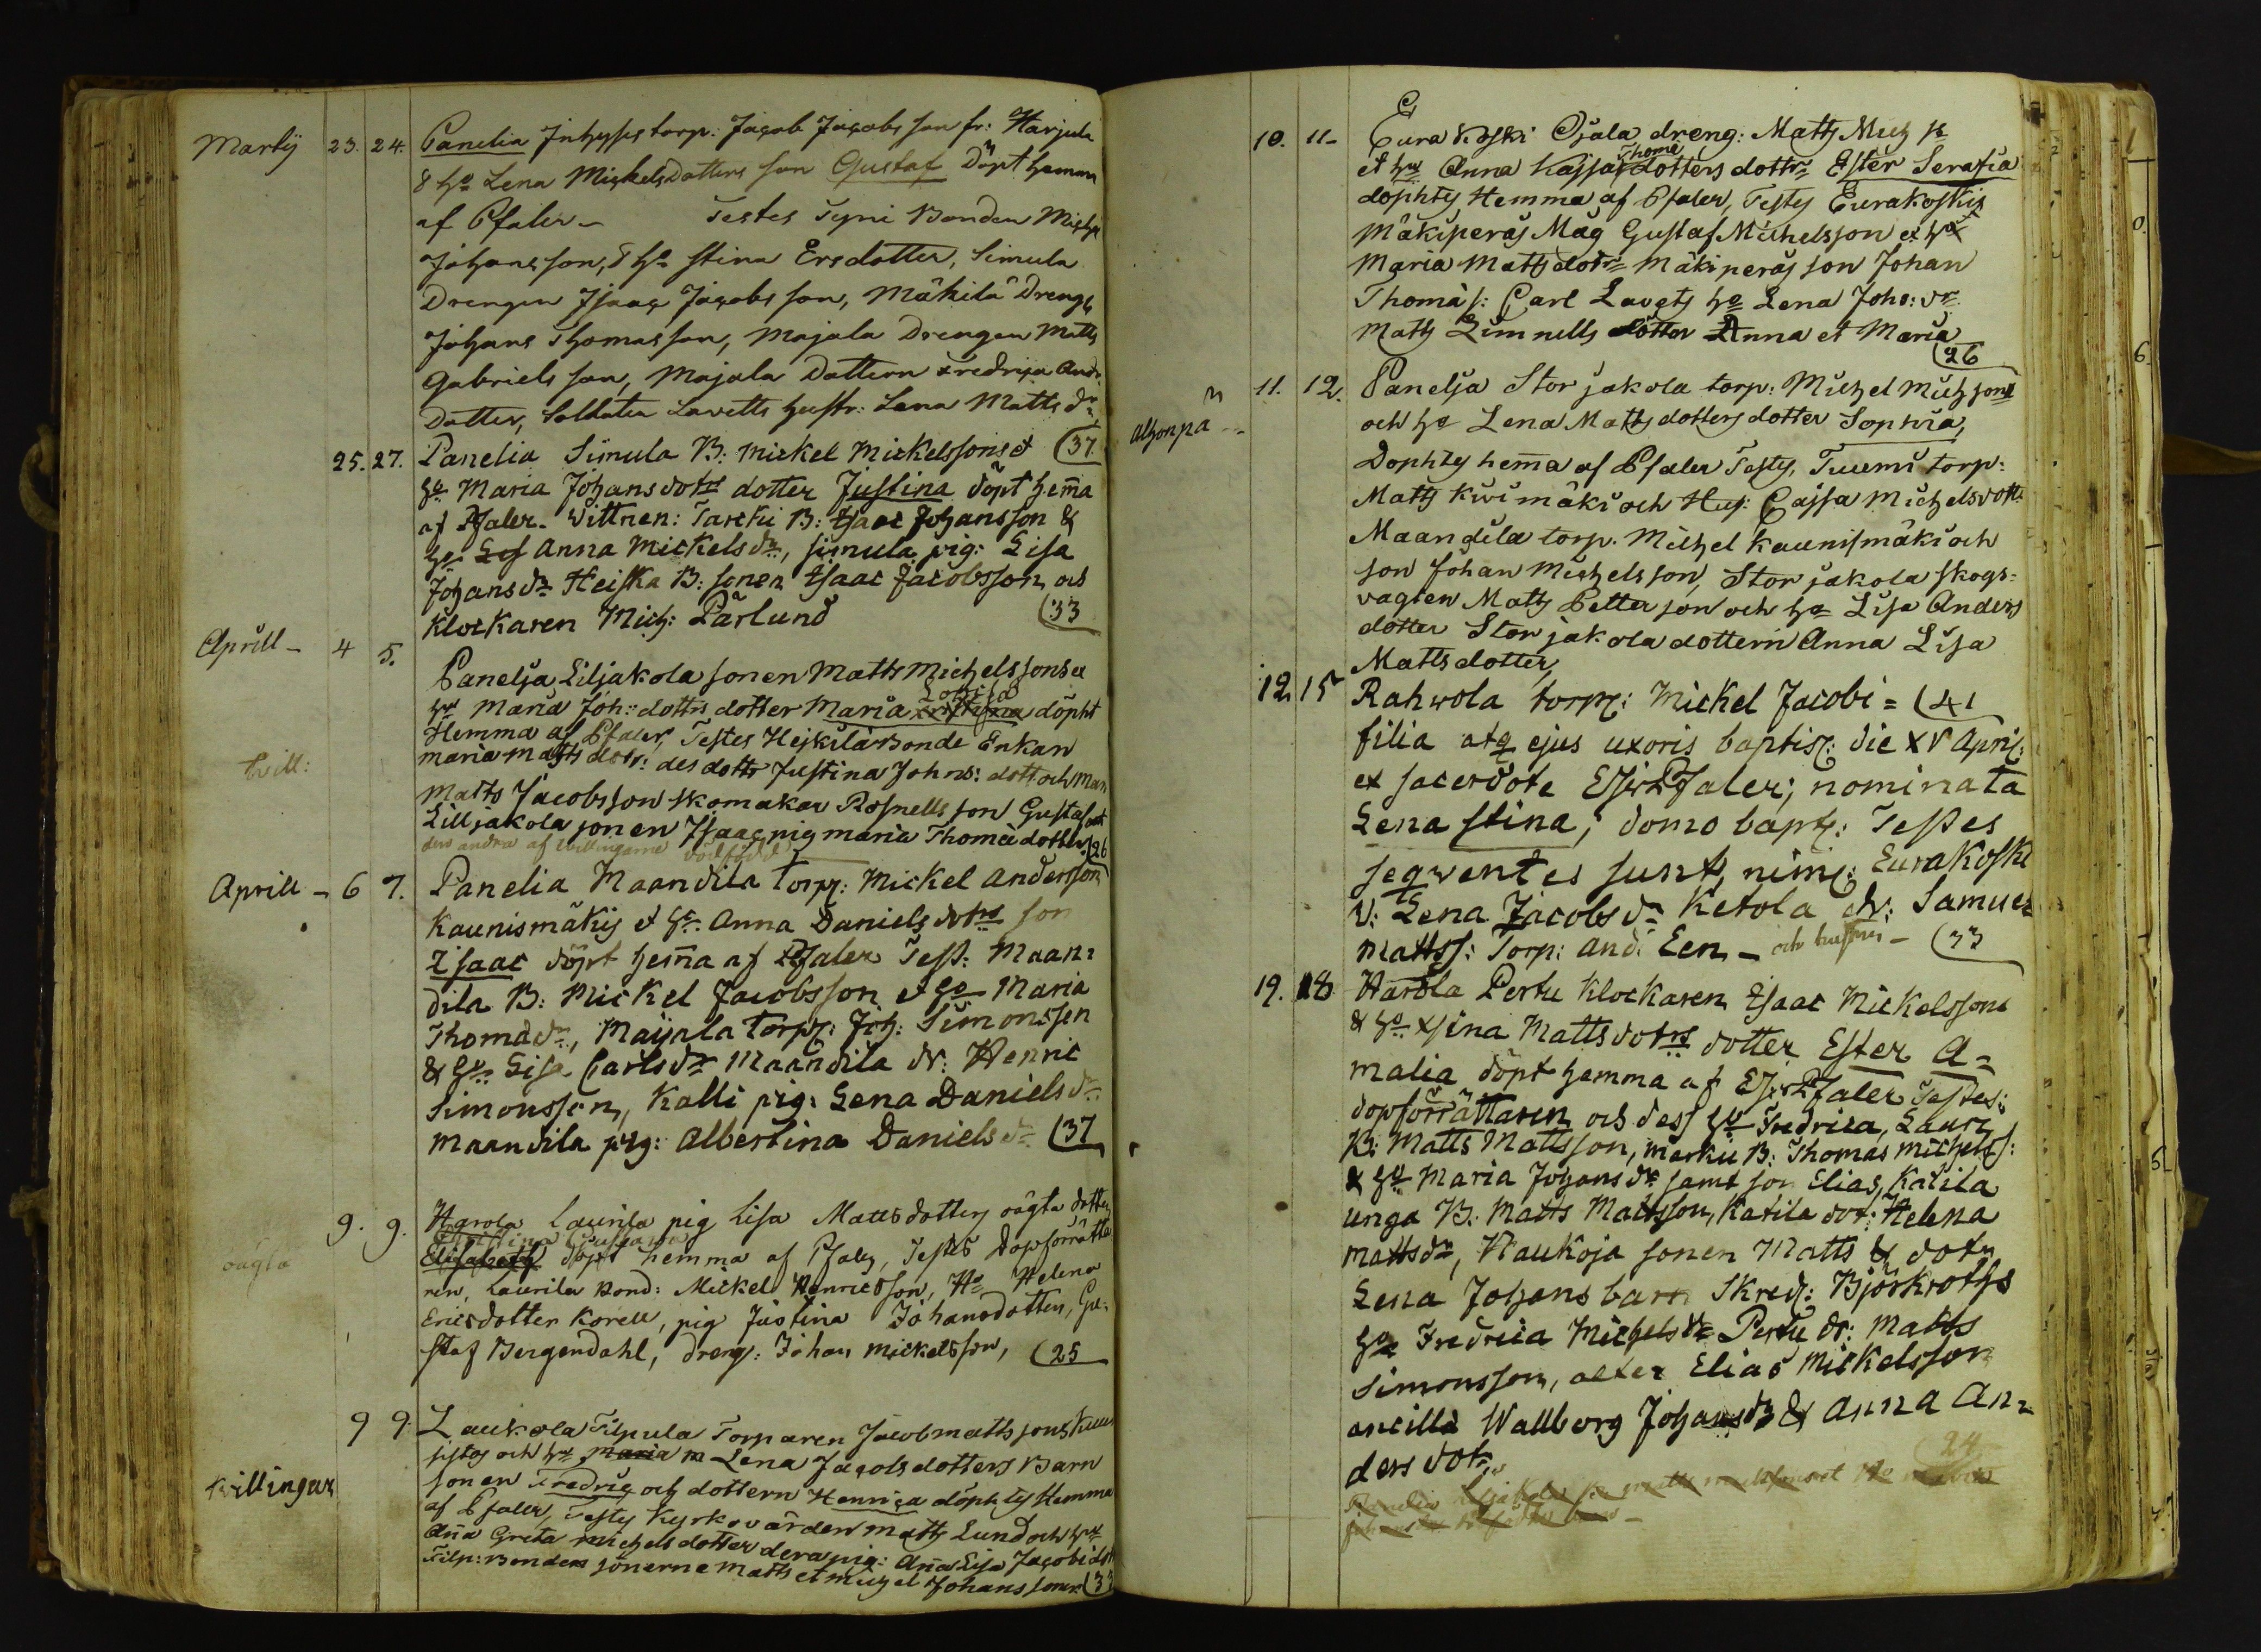 Martij 23. 24. Panelia Inhyses torp: Jacob Jacobs son fr: Harjula
& ho Lena Mickelsdotters son Gustaf Döpt hemma
af Pfaler - Testes Tyni Bonden Michel
Johansson, & ho Stina Ersdotter, Simula
Drengen Isaac Jacobsson, Mäkilä Dreng
Johans Thomasson, Majala Drengen Matts
Gabrielsson, Majala Dottern Fredrica Andr.
Dotter, Soldaten Lavetts hustr: Lena Matts dr
25. 27. Panelia Simula B: Mickel Mickelssons et (37
ho Maria Johansdotrs dotter Justina döpt hem̄a
af Pfaler. Wittnen: Tarcki B: Isaac Johansson &
ho Lis Anna Mickelsdr, Simula pig: Lisa
Johansdr Heiska B: sonen Isaac Jacobsson, och
Klockaren Mich: Pärlund (33
Aprill - 4 5. Panelja Liljakola sonen Matts Michelssons et
hu Maria Joh: dottrs dotter Maria Lovisa döpht
Hemma af Pfaler, Testes Hejkilä Bonde Enkan
Maria Matts dotr: des dottr Justina Johns: dott och Man
Tvill:
Matts Jacobsson Skomakar Rosnells son Gustaf
Lilljakola sonen Isaac pig Maria Thomä dotter (26
den andra af tvillingarne dödfödd
Aprill - 6 7. Panelia Maandila Torpr: Mickel Andersson
Kaunismäkis et ho Anna Daniels dotrs son
Isaac döpt hem̄a af Pfaler Test: Maan=
dila B: Mickel Jacobsson et ho Maria
Thomädr, Maijala torpr: Joh: Simonsson
& ho Lisa Carlsdr Maandila dr: Henric
Simonsson, Kalli pig: Lena Danielsdr
Maandila pig: Albertina Danielsdr (37
9. 9. Harola Laurila pig Lisa Mattsdotters oägta dotter
Christina Gustava
oägta
Elisabeth döpt hemma af Pfaler, Testes Dopförrätta
ren, Laurila Bond: Mickel Henricsson, Ho Helena
Ericsdotter Korell, pig Justina Johansdotter, Gu=
staf Bergendahl, dreng: Johan Mickelsson, (25
9 9. Laukola Filpula Torparen Jacob Mattssons Kuu
sistos och hu Maria M Lena Jacobsdotters Barn
Killingar
sonen Fredric och dottern Henrica döphtes Hemma
af Pfaler, Testes Kyrkovärden Matts Lund och hu
An̄a Greta Michelsdotter dera pig: An̄a Lisa Jacobidot
Filp: Bonden sönerne Matts et Michel Johanssoner (33
10. 11- Eura Koski Ojala dreng: Matts Mich s:
et hu Anna Kajsa Thome dotters dottr Ester Serafia
döphtes Hemma af Pfaler, Testes Eurakoskis
Mäkiperäs Mag Gustaf Michelsson et hu
Maria Mattsdotr Mäkiperäs son Johan
Thomä s: Carl Lavets ho Lena Joho: dr
Matts Limnells dötter Anna et Maria (26
11. 12. Panelja Storjakola torp: Michel Michsons
Alhonpä
och ho Lena Mattsdotters dotter Sophia,
Döphtes hem̄a af Pfaler Testes, Tuomi torp:
Matts Kivimäki och Hus: Cajsa Michelsdott:
Maandila torp. Michel Kaunismäki och
son Johan Michelsson, Storjakola skogs=
vagten Matts Petterson och ho Lisa Anders
dotter Storjakola dottern Anna Lisa
Mattsdotter,
12 15 Rahvola torpr: Mickel Jacobi = (41
filia atq ejus uxoris baptisr: die XV Apris:
ex sacerdote Esr Pfaler; nominata
Lena Stina, domo bapt: Testes
seqventes sunt, nimr: Eurakoski
v: Lena Jacobsdr Ketola dr: Samuel
Mattss: Torp: And: Een - och hustrun - (33
19. 18 Harola Pertu Klockaren Isaac Mickelssons
& ho Stina Mattsdotrs dotter Ester A=
malia döpt hemma af Esr Pfaler Testes:
dopförrättaren och dess ho Fredrica, Lauri
B: Matts Mattsson, Markii B: Thomas Michels:
& ho Maria Johansdr samt son Elias, Katila
unga B: Matts Mattsson, Katila dot: Helena
Mattsdr, Naukoja sonen Matts & dotr
Lena Johans barn Skredr: Björkroths
ho Fredrica Michelsdr Pertu dr: Matts
Simonsson, alter Elias Mickelsson
ancilla Wallborg Johansdr & Anna An=
ders dotr
24